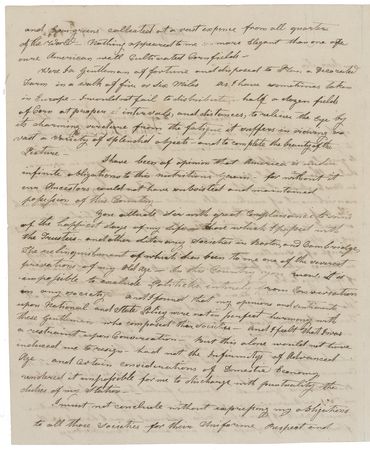 and Evergreens collected at a vast expence from all quarters
of the World - Nothing appeared to me more Elegant than one of
our American well Cultivated Cornfields -
Were I a Gentleman of fortune and disposed to Plan, a Decorated
Farm in a walk of five or six Miles as I have sometimes taken
in Europe I would not fail to distribute half a dozen fields
of Corn at proper intervals, and distances, to relieve the Eye by
its charming verdure from the fatigue it suffers in viewing so
vast a variety of splendid objects - and to complete the beauty of the
Picture -
I have been of opinion that America is under
infinite obligations to this nutritious grain for without it
our Ancestors could not have subsisted and maintained
possession of this Country
You allude Sir with great Complaisance to some
of the happiest days of my life those which I passed with
the Trustees and other Literary Societies in Boston, and Cambridge
The relinquishment of which has been to me one of the severest
privations of my Old Age - In this Country you must
impossible to exclude Politicks entirely from Conversation
in any society and I found that my opinions and sentiments
upon National and State Policy were not in perfect harmony with
these Gentlemen who composed those Societies - and I felt that I was
a restraint upon Conversation But this alone would not have
induced me to resign had not the Infirmities of Advanced
Age and Certain considerations of Domestic Economy
rendered it impossible for me to discharge with punctuality the
duties of my Station
I must not conclude without expressing my obligations
to all those Societies for their Uniform respect and